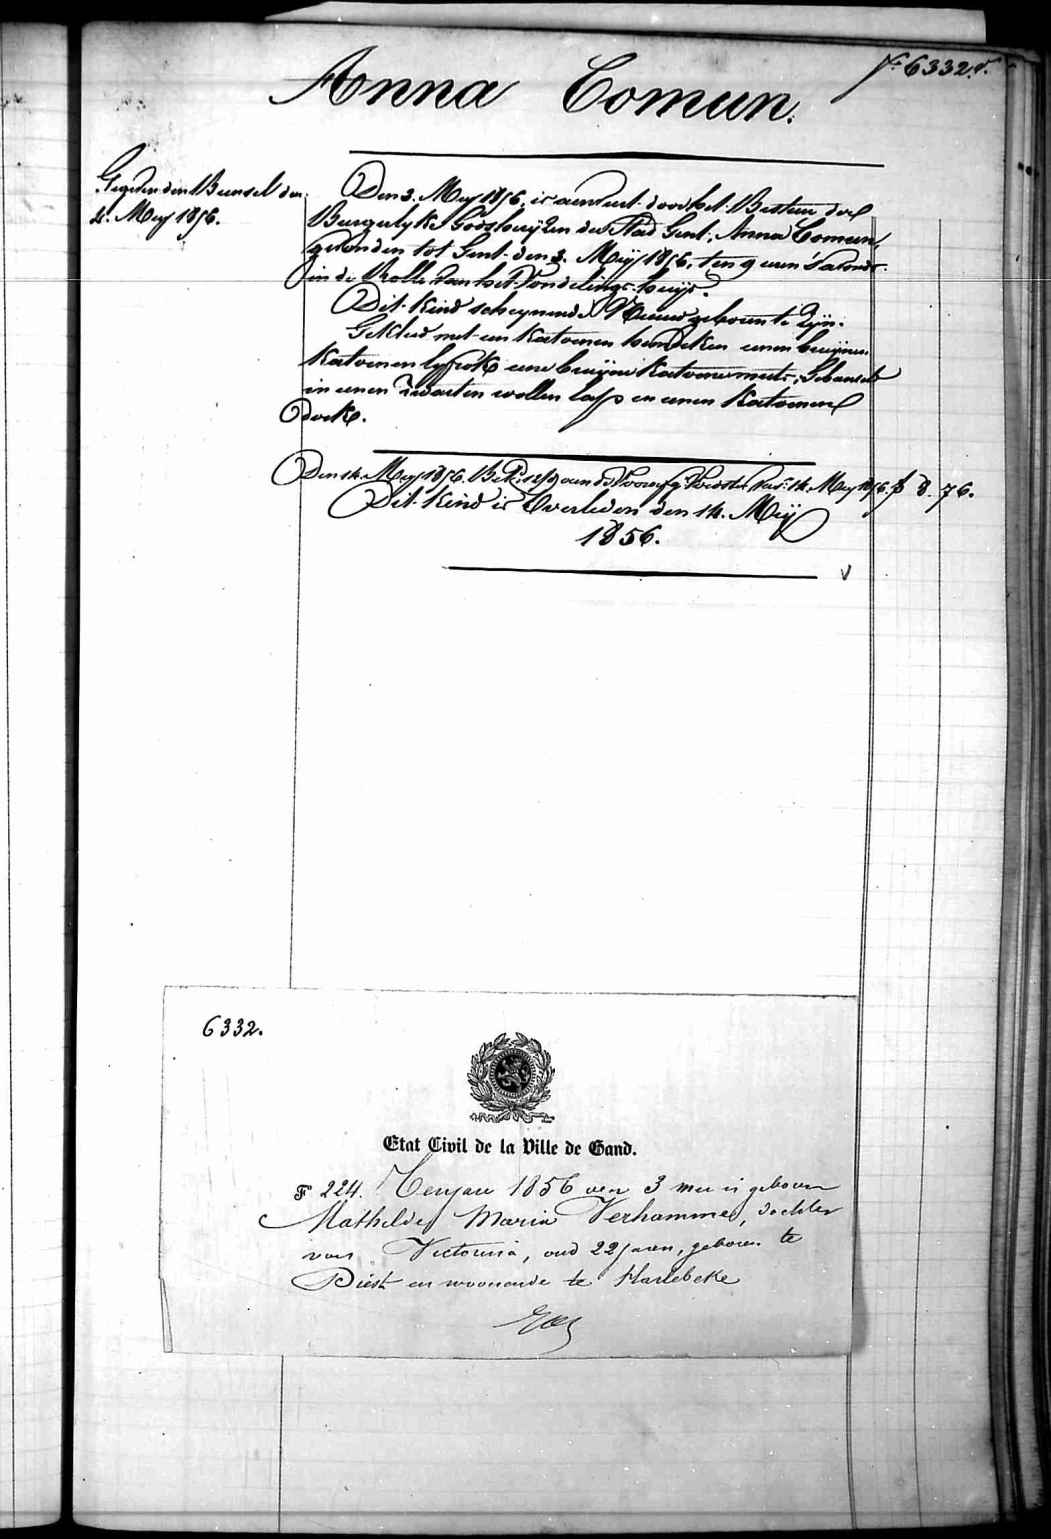 N° 6332.
Anna Comun.
den
4. Mey 1856.
Den 3. Mey 1856, is aenveert door het Bestier der
Burgerlyke Godshuyzen der Stad Gent, Anna Comun,
gevonden tot Gent den 3. Meij 1856, ten 9 uren 's avonds
in de Rolle van het Vondelings-huijs.
Dit Kind scheynende Nieuw geboren te Zyn.
Gekleed met een Katoenen hemdeken eenen bruynen
Katoenen lyfrok eene bruyne Katoene muts, Gebonden
in eenen Zwarten wollen lap en eenen Katoenen
Doek.
Den 14. Mey 1856. 14. Mey 1856. f 8. 76.
Dit Kind is Overleden den 14. Meij
1856.
6332.
Etat Civil de la Ville de Gand.
F 224. Ten jare 1856 den 3 mei is geboren
Mathilde Maria Verhamme, dochter
van Victoria, oud 22 jaren, geboren te
Diest en woonende te Harlebeke